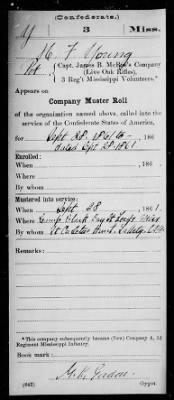 (Confederate.)
Y 3 Miss.
H. F. Young
Pvt, Capt. James B. McRae's Company
(Live Oak Rifles),
3 Reg't Mississippi Volunteers.*
Appears on
Company Muster Roll
of the organization named above, called into the
service of the Confederate States of America,
for Sept 28, 1861 to , 186 .
dated Sept 28 1861
Enrolled:
When , 186 .
Where
By whom
Mustered into service:
When Sept. 28 , 1861.
Where Camp Clark Bay St Louis Miss
By whom
Remarks:
*This company subsequently became (new) Company A, 3d
Regiment Mississippi Infantry.
Book mark:
(642)
Copyist.